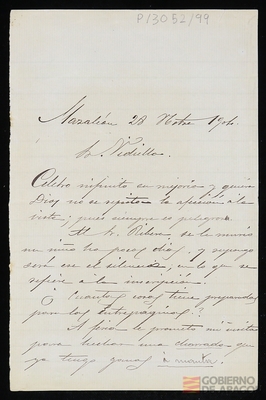 P/3052/99
Mazaleón 28 Nbre 1904.
Sr. Vidiella.
Celebro infinito su mejoria y quiera
Dios no se repita la afeccion a la
vista; pues siempre es peligrosa.
Al Sr. Ribera se le murió
un niño hace pocos dias, y supongo
será ese el silencio, en lo que se
refiere a la inscripcion.
¿Cuantas cosas tiene preparadas
para las entrepaginas?
A Jesus le prometo un escrito
para hechar una charrada que
ya tengo ganas
GOBIERNO
DE ARAGON